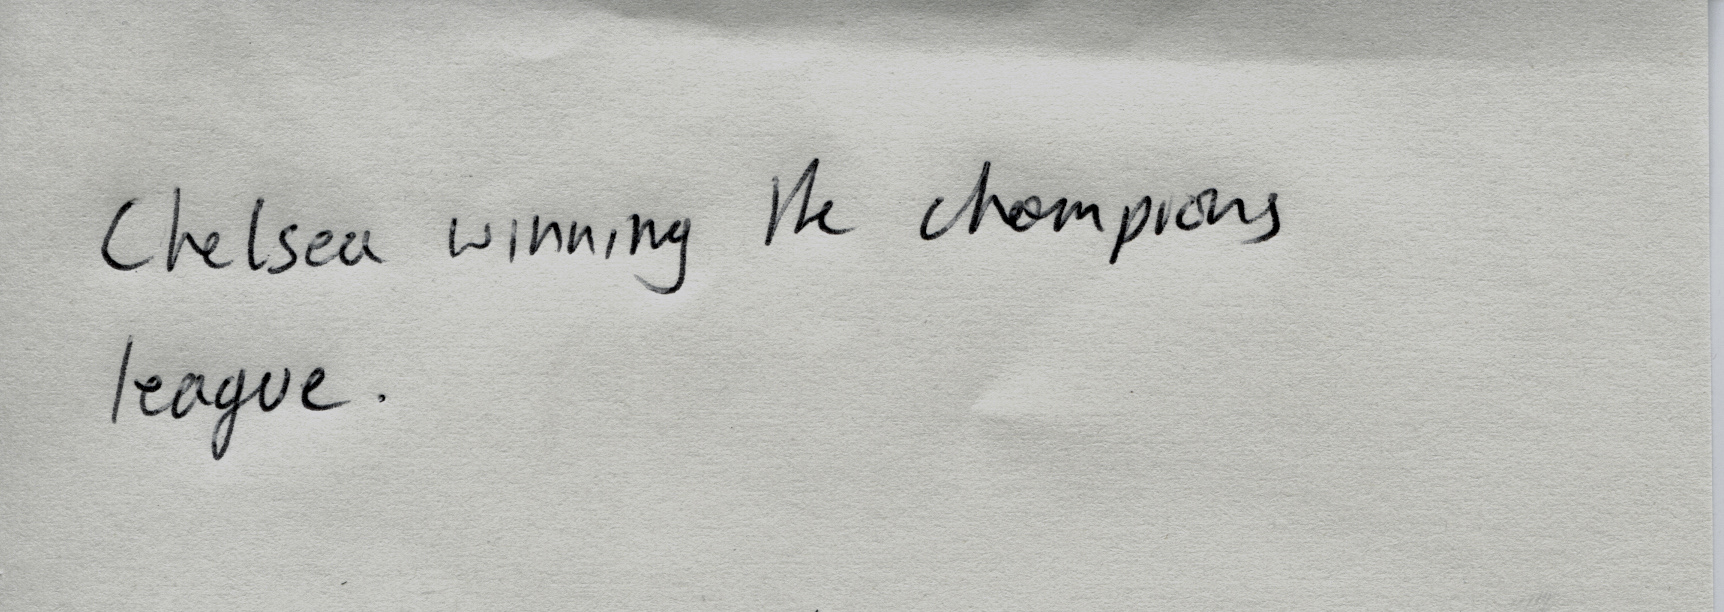 Chelsea winning the champions
league.